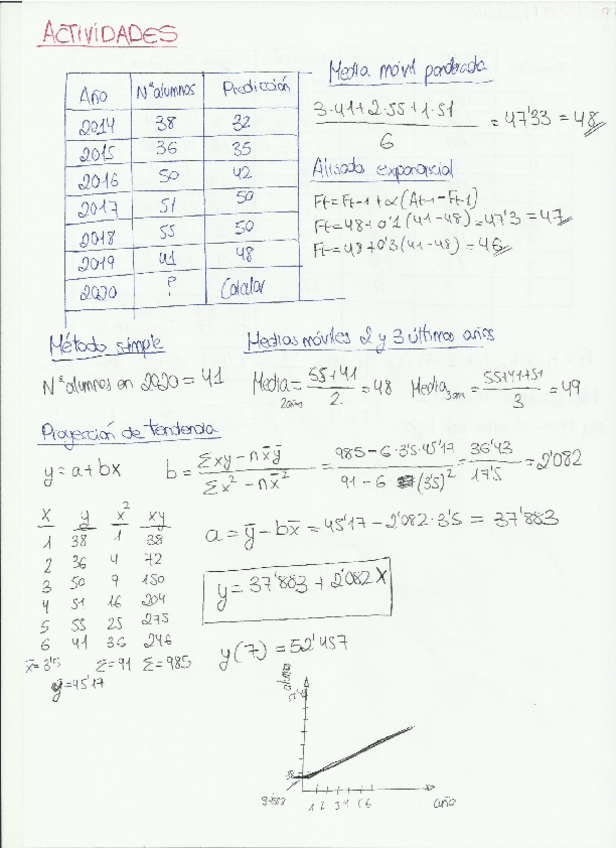 ACTIVIDADES
Año Nºalumnos Predicción
2014 38 32
2015 36 35
2016 50 42
2017 51 50
2018 55 50
2019 41 48
2020 ? Calcular
Media móvil ponderada
3·41+2·55+1·51
6
= 47'33 = 48
Alisado exponencial
Ft = Ft-1 + α (At-1 - Ft-1)
Ft = 48 + 0'1 (41 - 48) = 47'3 = 47
Ft = 48 + 0'3 (41 - 48) = 46
Método simple
Nºalumnos en 2020 = 41
Medias móviles 2 y 3 últimos años
Media 2años = 55+41 / 2 = 48 Media 3años = 55+41+51 / 3 = 49
Proyección de tendencia
y = a + bx b = Σxy - nx̄ȳ / Σx² - nx̄² = 985 - 6·3'5·45'17 / 91 - 6 (3'5)² = 36'43 / 17'5 = 2'082
x y x² xy
1 38 1 38
2 36 4 72
3 50 9 150
4 51 16 204
5 55 25 275
6 41 36 246
x̄ = 3'5 Σ = 91 Σ = 985
ȳ = 45'17
a = ȳ - bx̄ = 45'17 - 2'082·3'5 = 37'883
y = 37'883 + 2'082x
y(7) = 52'457
alumnos
1 2 3 4 5 6
año